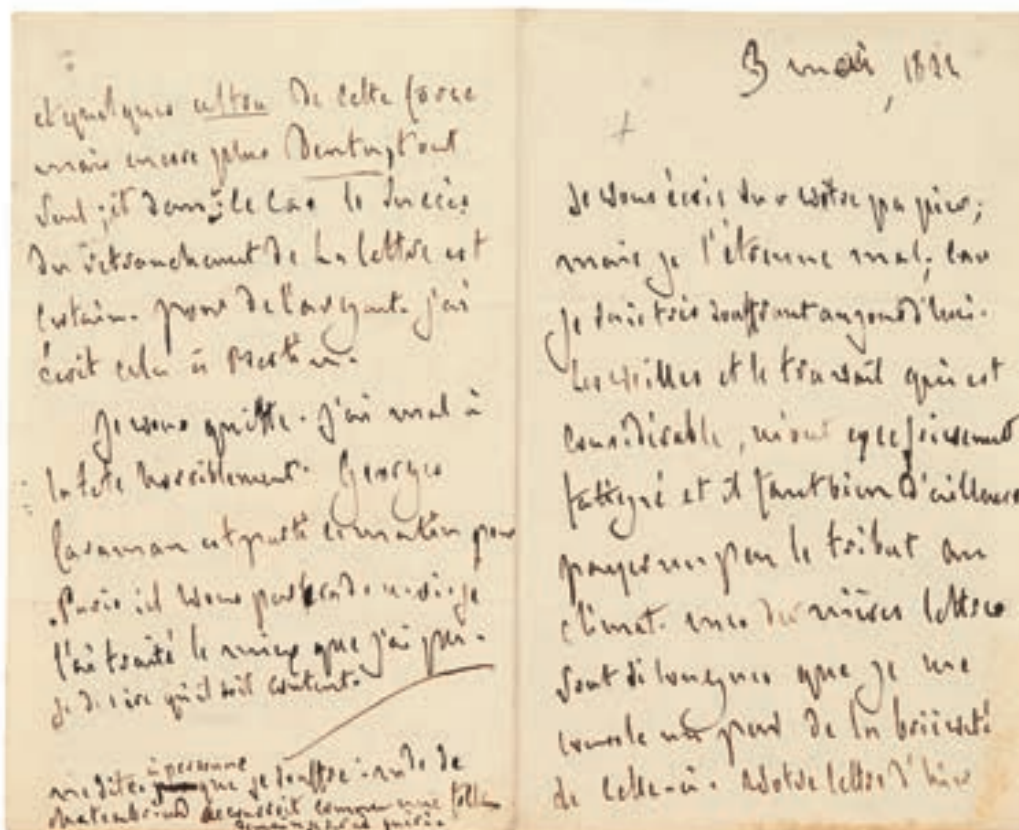 et quelques ultra de cette force
mais encore plus Dentu, tout
seul; et dans le cas le succès
du retranchement de la lettre est
certain pour de l'argent. j'ai
écrit cela à
Je vous quitte. j'ai mal à
la tete horriblement. Georges
Caraman est parti ce matin pour
Paris il vous parlera de moi. je
l'ai traité le mieux que j'ai pu.
je desire qu'il soit content.
ne dites à personne que je souffre. mde de
Chateaubriand accourroit comme une folle
demain je serai guéri.
3 mai, 1822
Je vous écris sur votre papier;
mais je l'étrenne mal; car
je suis très souffrant aujourd'hui.
Les veilles et le travail qui est
considérable, m'ont excessivement
fatigué et il faut bien d'ailleurs
payer un peu le tribut au
climat. mes dernières lettres
sont si longues que je me
console un peu de la brièveté
de celle-ci. Votre lettre d'hier